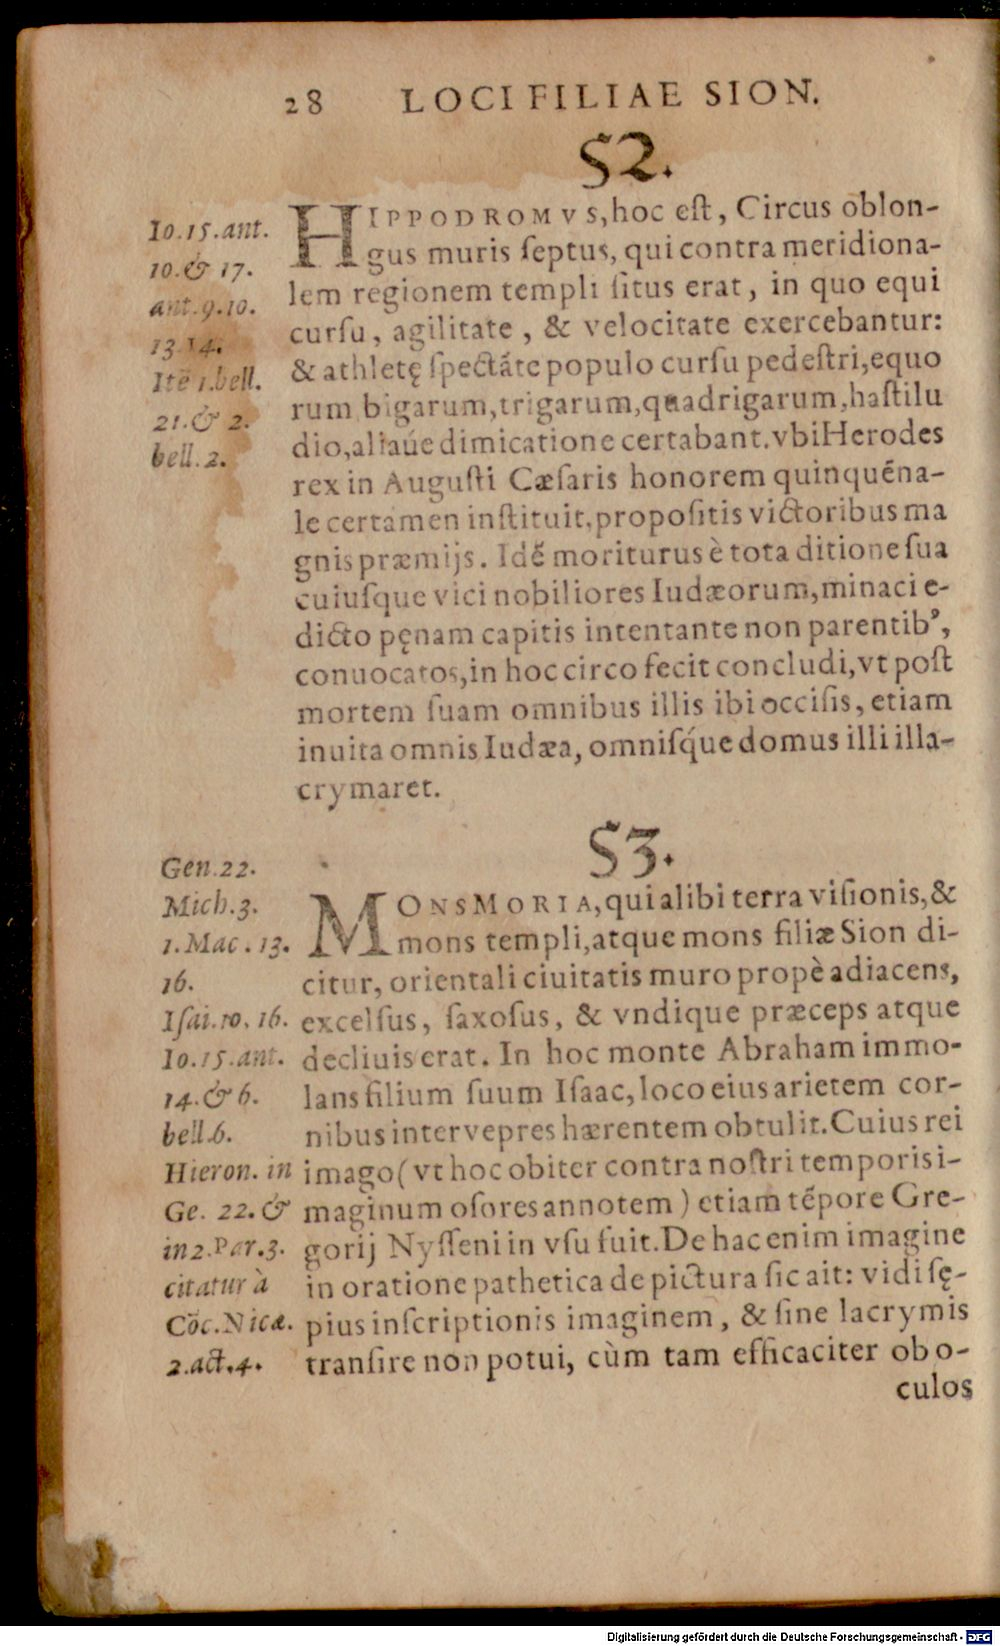 28 LOCI FILIAE SION.
52.
Io. 15. ant.
10. & 17.
ant. 9. 10.
13. 14.
Itē 1. bell.
21. & 2.
bell. 2.
HIPPODROMVS, hoc eſt, Circus oblon-
gus muris ſeptus, qui contra meridiona-
lem regionem templi ſitus erat, in quo equi
curſu, agilitate, & velocitate exercebantur:
& athletę ſpectāte populo curſu pedeſtri, equo
rum bigarum, trigarum, quadrigarum, haſtilu
dio, aliaúe dimicatione certabant. vbi Herodes
rex in Auguſti Cæſaris honorem quinquēna-
le certamen inſtituit, propoſitis victoribus ma
gnis præmijs. Idē moriturus è tota ditione ſua
cuiuſque vici nobiliores Iudæorum, minaci e-
dicto pęnam capitis intentante non parentibꝰ,
conuocatos, in hoc circo fecit concludi, vt poſt
mortem ſuam omnibus illis ibi occiſis, etiam
inuita omnis Iudæa, omniſq́ue domus illi illa-
crymaret.
53.
Gen. 22.
Mich. 3.
1. Mac. 13.
16.
Iſai. 10. 16.
Io. 15. ant.
14. & 6.
bell. 6.
Hieron. in
Ge. 22. &
in 2. Par. 3.
citatur à
Cōc. Nicæ.
2. act. 4.
MONS MORIA, qui alibi terra viſionis, &
mons templi, atque mons filiæ Sion di-
citur, orientali ciuitatis muro propè adiacens,
excelſus, ſaxoſus, & vndique præceps atque
decliuis erat. In hoc monte Abraham immo-
lans filium ſuum Iſaac, loco eius arietem cor-
nibus inter vepres hærentem obtulit. Cuius rei
imago (vt hoc obiter contra noſtri temporis i-
maginum oſores annotem) etiam tēpore Gre-
gorij Nyſſeni in vſu fuit. De hac enim imagine
in oratione pathetica de pictura ſic ait: vidi ſę-
pius inſcriptionis imaginem, & ſine lacrymis
tranſire non potui, cùm tam efficaciter ob o-
culos
Digitalisierung gefördert durch die Deutsche Forschungsgemeinschaft - DFG